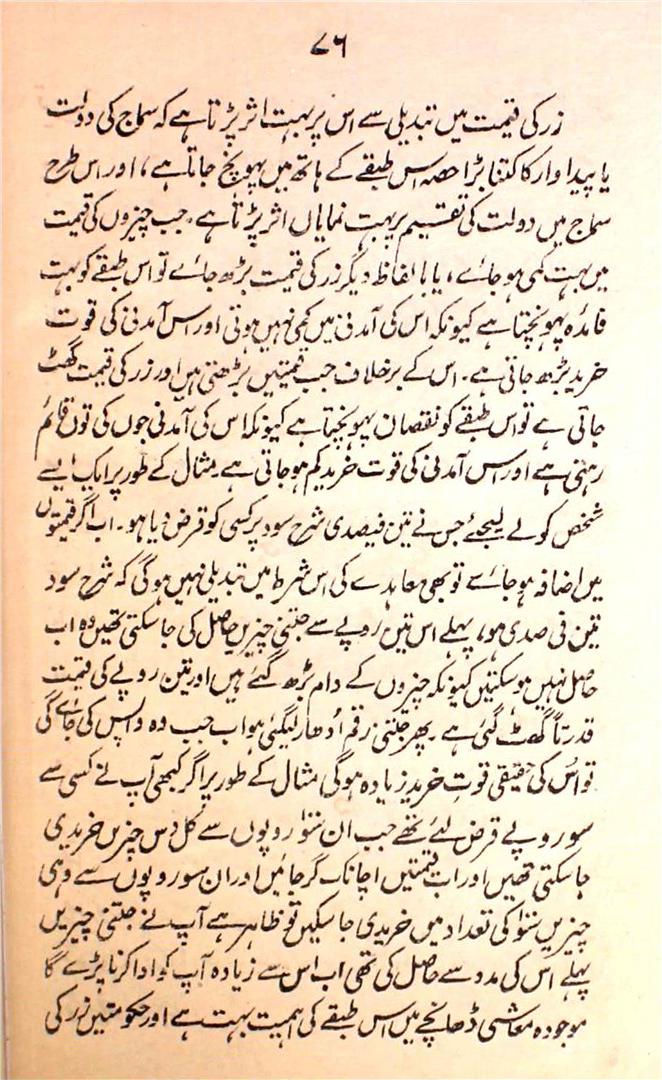 ۷۶
زر کی قیمت میں تبدیلی سے اس پر بہت اثر پڑتا ہے کہ سماج کی دولت
یا پیداوار کا کتنا بڑا حصہ اس طبقے کے ہاتھ میں پہونچ جاتا ہے، اور اس طرح
سماج میں دولت کی تقسیم پر بہت نمایاں اثر پڑتا ہے۔ جب چیزوں کی قیمت
میں بہت کمی ہو جائے، یا بالفاظ دیگر زر کی قیمت بڑھ جائے تو اس طبقے کو بہت
فائدہ پہونچتا ہے کیونکہ اس کی آمدنی میں کمی نہیں ہوتی اور اس آمدنی کی قوت
خرید بڑھ جاتی ہے۔ اس کے برخلاف جب قیمتیں بڑھتی ہیں اور زر کی قیمت گھٹ
جاتی ہے تو اس طبقے کو نقصان پہونچتا ہے کیونکہ اس کی آمدنی جوں کی توں قائم
رہتی ہے اور اس آمدنی کی قوت خرید کم ہو جاتی ہے۔ مثال کے طور پر ایک ایسے
شخص کو لے لیجئے جس نے تین فیصدی شرح سود پر کسی کو قرض دیا ہو۔ اب اگر قیمتوں
میں اضافہ ہو جائے تو بھی معاہدے کی اس شرط میں تبدیلی نہیں ہو گی کہ شرح سود
تین فی صدی ہو، پہلے اس تین روپے سے جتنی چیزیں حاصل کی جا سکتی تھیں وہ اب
حاصل نہیں ہو سکتیں کیونکہ چیزوں کے دام بڑھ گئے ہیں اور تین روپے کی قیمت
قدرتاً گھٹ گئی ہے۔ پھر جتنی رقم اُدھار لیگئی ہو اب جب وہ واپس کی جائے گی
تو اُس کی حقیقی قوتِ خرید زیادہ ہو گی مثال کے طور پر اگر کبھی آپ نے کسی سے
سو روپے قرض لئے تھے جب ان سَو روپوں سے کل دس چیزیں خریدی
جا سکتی تھیں اور اب قیمتیں اچانک گر جائیں اور ان سو روپوں سے وہی
چیزیں سَو کی تعداد میں خریدی جا سکیں تو ظاہر ہے آپ نے جتنی چیزیں
پہلے اس کی مدد سے حاصل کی تھی اب اس سے زیادہ آپ کو ادا کرنا پڑے گا
موجودہ معاشی ڈھانچے میں اس طبقے کی اہمیت بہت ہے اور حکومتیں زر کی